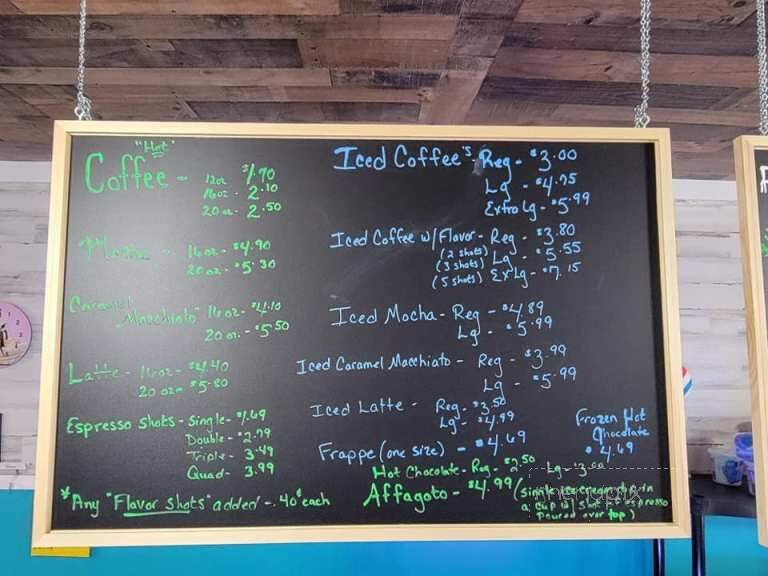 "Hot"
Coffee - 12oz $1.90
16oz - 2.10
20oz - 2.50
Mocha - 16oz - $4.90
20oz - $5.30
Caramel Macchiato - 16oz - $4.10
20oz. - $5.50
Latte - 16oz - $4.40
20oz - $5.80
Espresso Shots - Single - $1.69
Double - $2.79
Triple - 3.49
Quad - 3.99
*Any "Flavor Shots" added - .40¢ each
Iced Coffee's - Reg - $3.00
Lg - $4.75
Extra Lg - $5.99
Iced Coffee w/ Flavor - Reg - $3.80
(2 shots)
(3 shots) Lg - $5.55
(5 shots) Ex Lg - $7.15
Iced Mocha - Reg - $4.89
Lg - $5.99
Iced Caramel Macchiato - Reg - $3.99
Lg - $5.99
Iced Latte - Reg - $3.50
Lg - $4.99
Frappe (one size) - $4.69
Frozen Hot
Chocolate
$4.69
Hot Chocolate - Reg - $2.50 Lg - $3.00
Affagoto - $4.99 (Single
a cup w/ shot espresso
Poured over top)